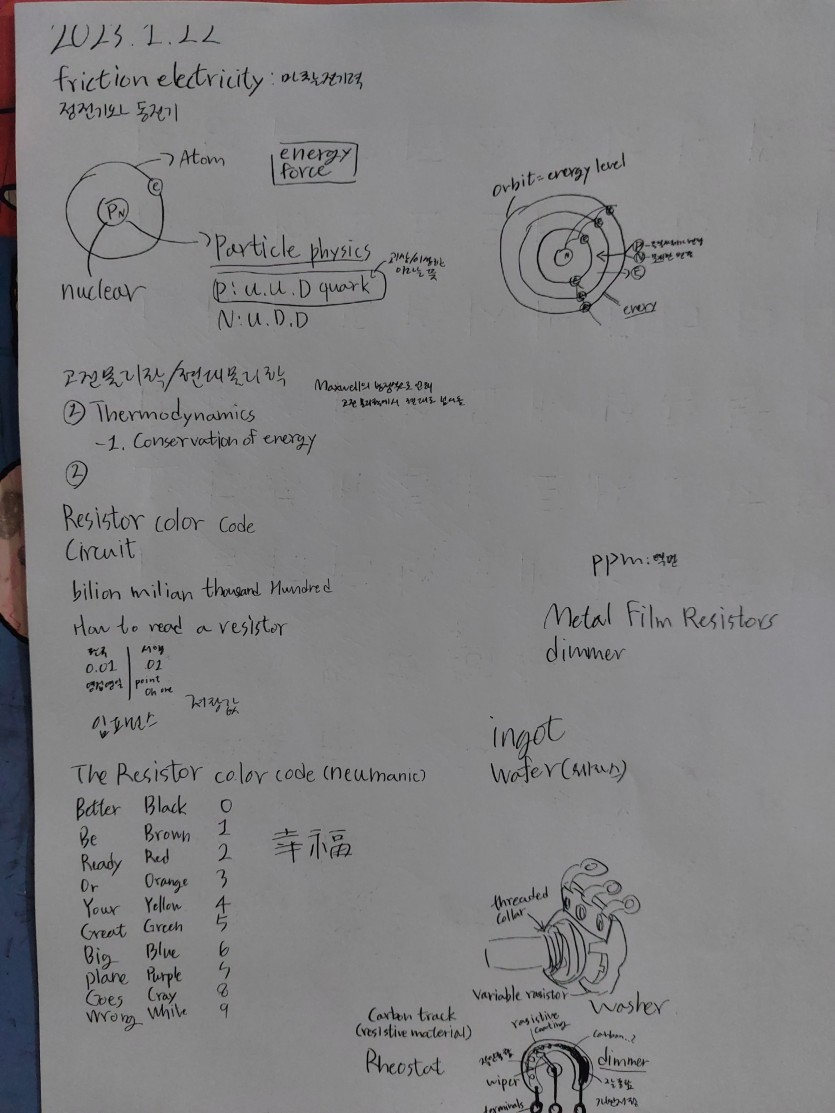 2023.1.22
friction electricity : 마찰전기력
정전기와 동전기
Atom
energy
force
e
PN
Particle physics
nuclear
P : U.U.D quark
N : U.D.D
orbit = energy level
N
고전물리학/현대물리학
Maxwell의 방정식으로 인해
고전 물리학에서 현대로 넘어옴
① Thermodynamics
-1. Conservation of energy
②
Resistor color code
Circuit
bilion milian thousand Hundred
ppm : 백만
How to read a resistor
한국 서양
0.01 .01
영점영일 point
Oh one
저항값
임피던스
Metal Film Resistors
dimmer
ingot
Wafer
The Resistor color code (neumanic)
Better Black 0
Be Brown 1
Ready Red 2
Or Orange 3
Your Yellow 4
Great Green 5
Big Blue 6
plane Purple 7
Goes Gray 8
Wrong While 9
幸福
threaded
collar
Variable rasistor
Washer
Carbon track
(resistive material)
Rheostat
rasistive
coating
carbon..?
dimmer
wiper
terminals